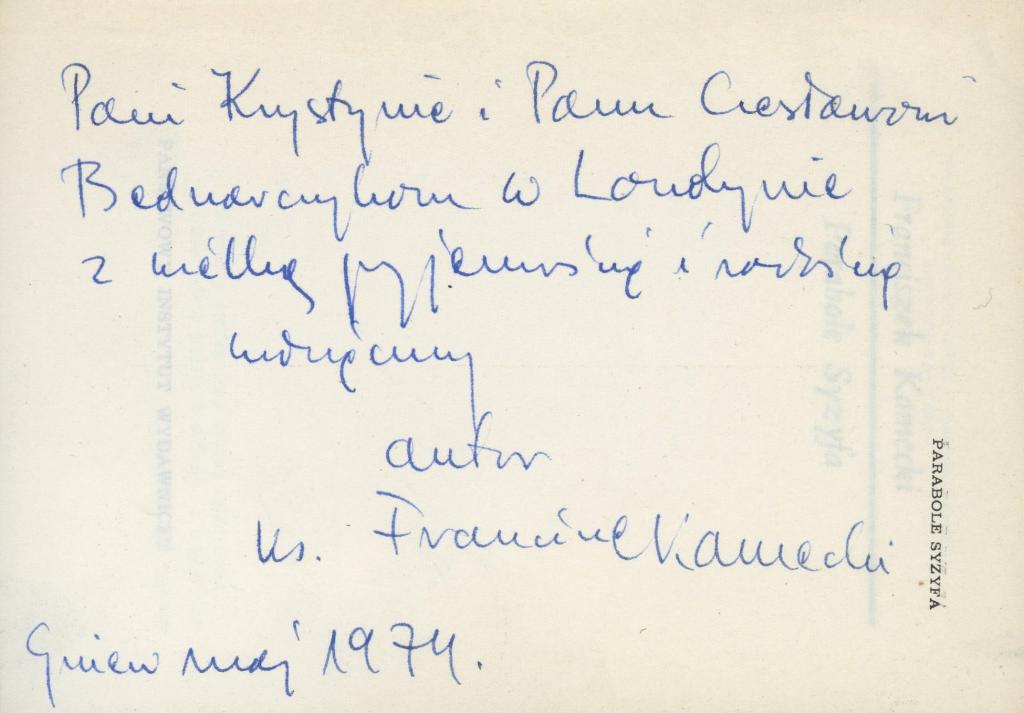 Pani Krystynie i Panu Czesławowi
Bednarczykom w Londynie
z wielką przyjemnością i radością
wdzięczny
autor
ks. Franciszek Kamecki
Gniew maj 1974.
PARABOLE SYZYFA
Franciszek Kamecki
Parabole Syzyfa
INSTYTUT WYDAWNICZY